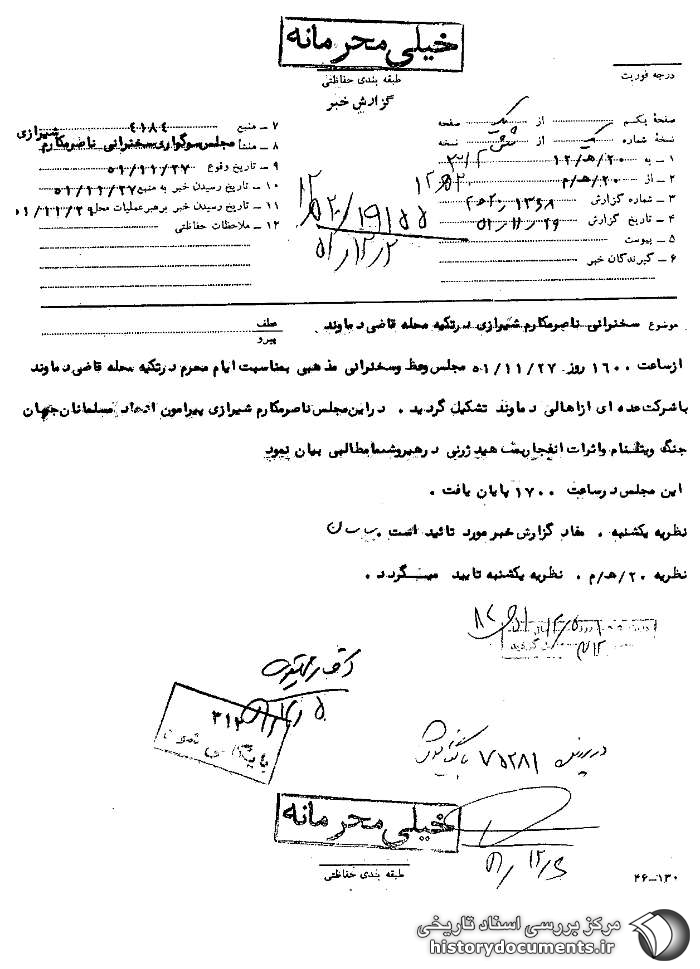 خیلی محرمانه
طبقه بندی حفاظتی
درجه فوریت
گزارش خبر
صفحهٔ یکم از یک صفحه
نسخهٔ شماره یک از شش نسخه
۱ ـ به ۱۲/ه‍/۲۰ ۳۱۲
۲ ـ از ۲۰/ه‍/م
۳ ـ شماره گزارش
۴ ـ تاریخ گزارش ۵۱/۱۱/۲۹
۵ ـ پیوست
۶ ـ گیرندگان خبر
۷ ـ منبع ۴۱۸۴
۸ ـ منشأ مجلس سوگواری سخنرانی ناصر مکارم شیرازی
۹ ـ تاریخ وقوع ۵۱/۱۱/۲۷
۱۰ ـ تاریخ رسیدن خبر به منبع ۵۱/۱۱/۲۷
۱۱ ـ تاریخ رسیدن خبر برهبر عملیات محل ۵۱/۱۱/۲۹
۱۲ ـ ملاحظات حفاظتی
۵۱/۱۲/۲
موضوع سخنرانی ناصرمکارم شیرازی درتکیه محله قاضی دماوند
عطف
پیرو
ازساعت ۱۶۰۰ روز ۵۱/۱۱/۲۷ مجلس وعظ وسخنرانی مذهبی بمناسبت ایام محرم درتکیه محله قاضی دماوند
باشرکت عده ای ازاهالی دماوند تشکیل گردید . دراین مجلس ناصرمکارم شیرازی پیرامون اتحاد مسلمانان جهان
جنگ ویتنام واثرات انفجاربمب هیدرژنی درهیروشیما مطالبی بیان نمود
این مجلس درساعت ۱۷۰۰ پایان یافت .
نظریه یکشنبه . مفاد گزارش خبر مورد تائید است .
نظریه ۲۰/ه‍/م . نظریه یکشنبه تایید میگردد .
۳۱۲
بایگانی شود
در پرونده ۷۵۲۸۱ بایگانی شود
خیلی محرمانه
طبقه بندی حفاظتی
۴۶-۱۳۰
مرکز بررسی اسناد تاریخی
historydocuments.ir